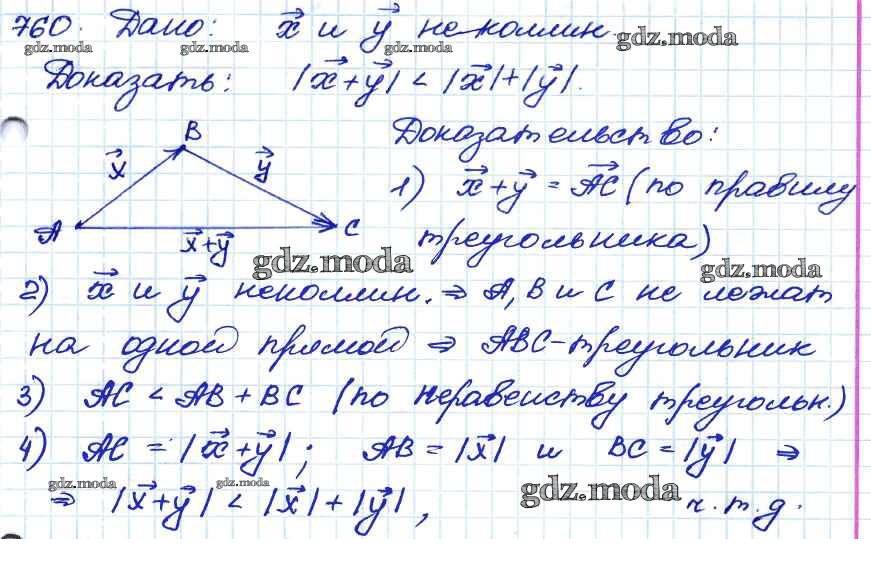 760. Дано: x⃗ и y⃗ неколлин.
gdz.moda gdz.moda gdz.moda gdz.moda
Доказать: |x⃗+y⃗| < |x⃗|+|y⃗|.
B
x⃗ y⃗
A C
x⃗+y⃗
Доказательство:
1) x⃗+y⃗ = AC⃗ (по правилу
треугольника)
gdz.moda gdz.moda
2) x⃗ и y⃗ неколлин. ⇒ A, B и C не лежат
на одной прямой ⇒ ABC-треугольник
3) AC < AB + BC (по неравенству треугольн.)
4) AC = |x⃗+y⃗|; AB = |x⃗| и BC = |y⃗| ⇒
gdz.moda gdz.moda gdz.moda
⇒ |x⃗+y⃗| < |x⃗| + |y⃗|, ч.т.д.